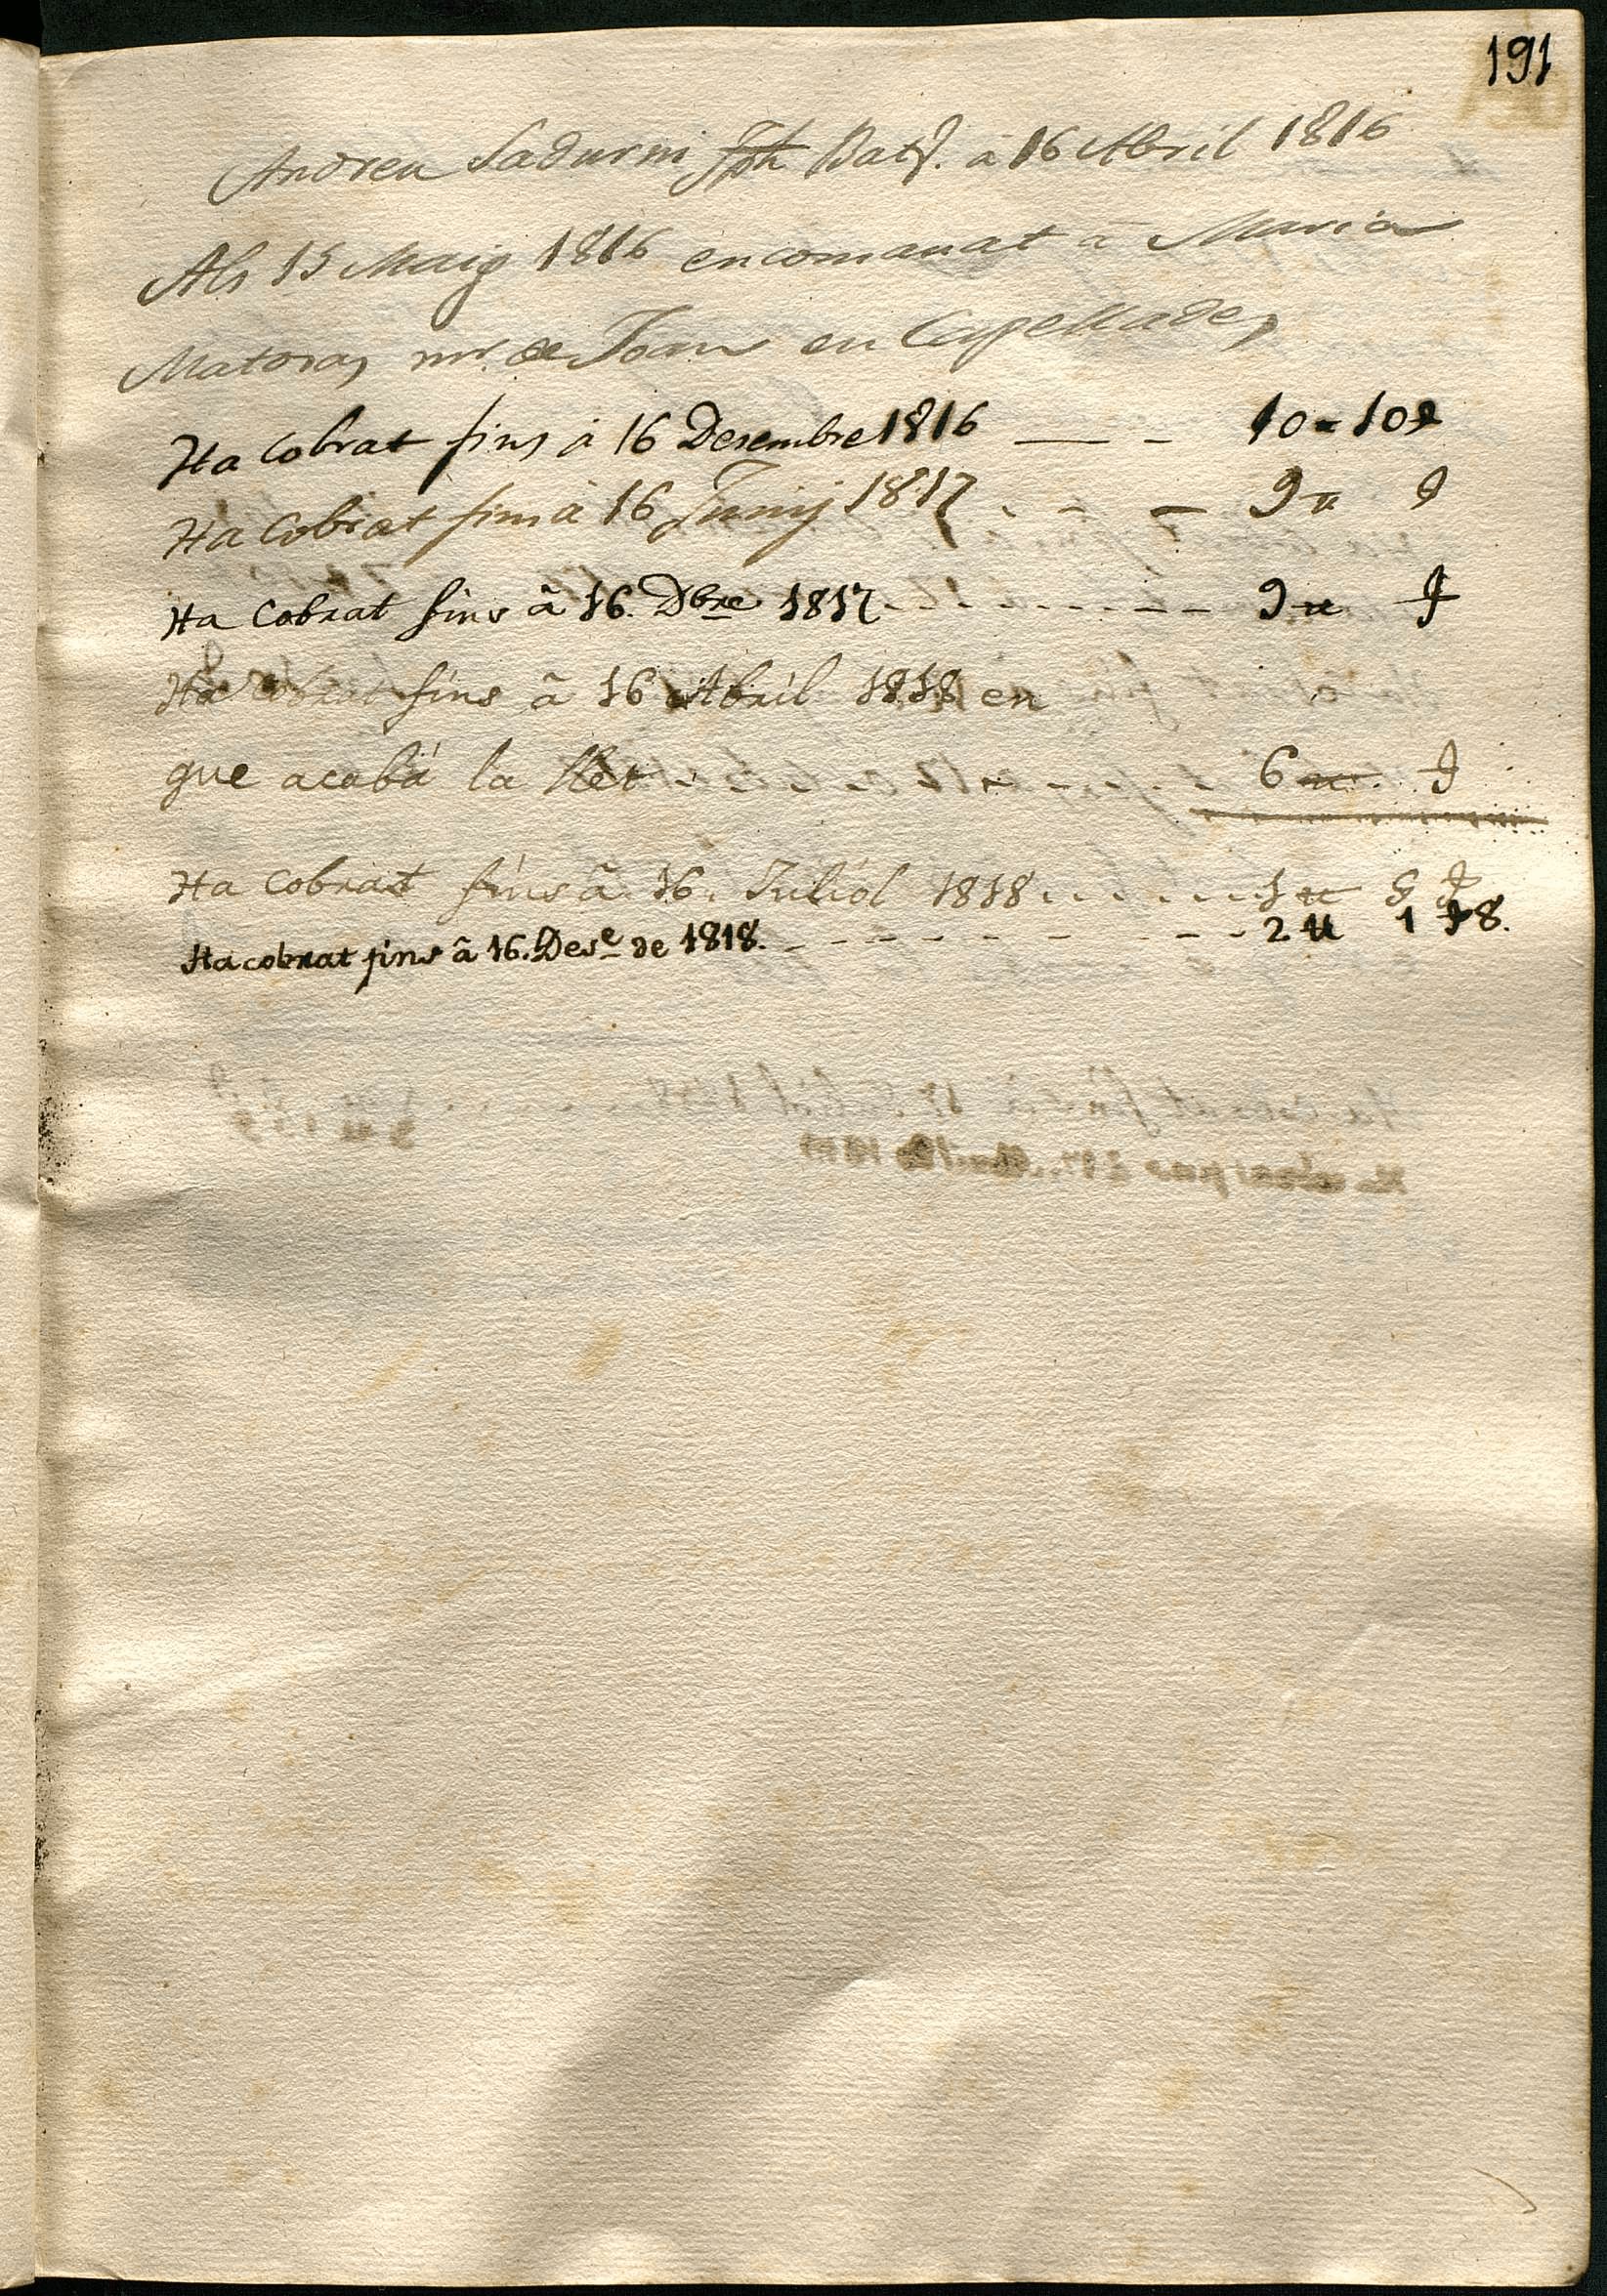 191
Andreu Sadurni Jph Batt. à 16 Abril 1816
Als 15 Maig 1816 encomanat à Maria
Matoras mr. de Joan en Capellades
Ha Cobrat fins à 16 Desembre 1816 — - 10 = 10 ʃ
Ha Cobrat fins à 16 Juny 1817 . - - — 9 ʉ ʃ
Ha Cobrat fins à 16. Dbre 1817 - - - - - - - - - - 9 ʉ ʃ
Ha Cobrat fins à 16 Abril 1818 en
que acabá la llet - . - . - . - . - . - 6 ʉ ʃ
Ha Cobrat fins à 16. Juliól 1818 . . . . . . . 1 ʉ ʃ
Ha cobrat fins à 16. Dese de 1818. - - - - - - - - - - 2 ʉ 1 ʃ 8.